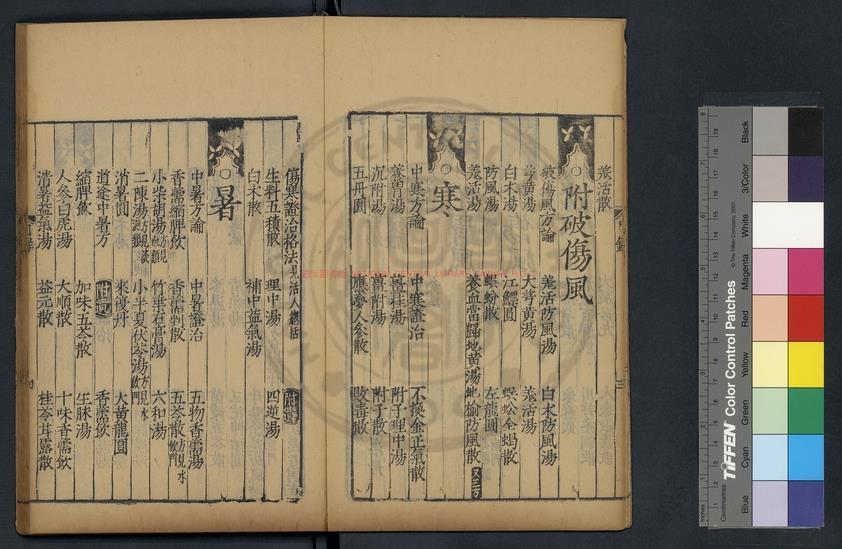 羌活散
附破傷風
破傷風方論 羌活防風湯 白朮防風湯
芎黃湯 大芎黃湯 羌活湯
白朮湯 江鰾圓 蜈蚣全蝎散
防風湯 蜈蚣散 左龍圓
羌活湯 養血當歸地黃湯 地榆防風散 又三方
寒
中寒方論 中寒證治 不換金正氣散
薑附湯 薑桂湯 附子理中湯
沉附湯 附子散
五丹圓 敗毒散
傷寒證治格法 見活人總括
生料五積散 理中湯 四逆湯
白朮散 補中益氣湯
暑
中暑方論 中暑證治 五物香薷湯
香薷縮脾飲 香薷散 五苓散 方見水飲門
小柴胡湯 竹葉石膏湯 六和湯
二陳湯 小半夏茯苓湯 方見水飲門
消暑圓 來復丹 大黃龍圓
道途中暑方 香薷飲
縮脾飲 加味五苓散 生脈湯
人參白虎湯 大順散 十味香薷飲
清暑益氣湯 益元散 桂苓甘露散
TIFFEN Color Control Patches
© The Tiffen Company, 2007
Blue
Cyan
Green
Yellow
Red
Magenta
White
3/Color
Black
Inches
Centimetres